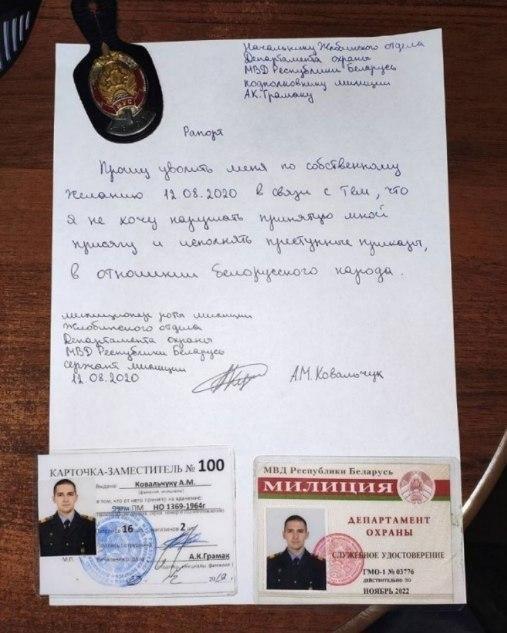 Начальнику Жлобинского отдела
Департамента охраны
МВД Республики Беларусь
подполковнику милиции
А.К. Грамаку
Рапорт
Прошу уволить меня по собственному
желанию 12.08.2020 в связи с тем, что
я не хочу нарушать принятую мной
присягу и исполнять преступные приказы,
в отношении белорусского народа.
милиционер роты милиции
Жлобинского отдела
Департамента охраны
МВД Республики Беларусь
сержант милиции
12.08.2020
А.М. Ковальчук
КАРТОЧКА-ЗАМЕСТИТЕЛЬ № 100
Выдана Ковальчуку А.М.
в том, что от него принято на хранение:
ПМ НО 1369-1964г
16 магазинов 2
А.К.Грамак
М.П.
МВД Республики Беларусь
МИЛИЦИЯ
ДЕПАРТАМЕНТ
ОХРАНЫ
СЛУЖЕБНОЕ УДОСТОВЕРЕНИЕ
ГМО-1 № 03776
ДЕЙСТВИТЕЛЬНО ПО
НОЯБРЬ 2022